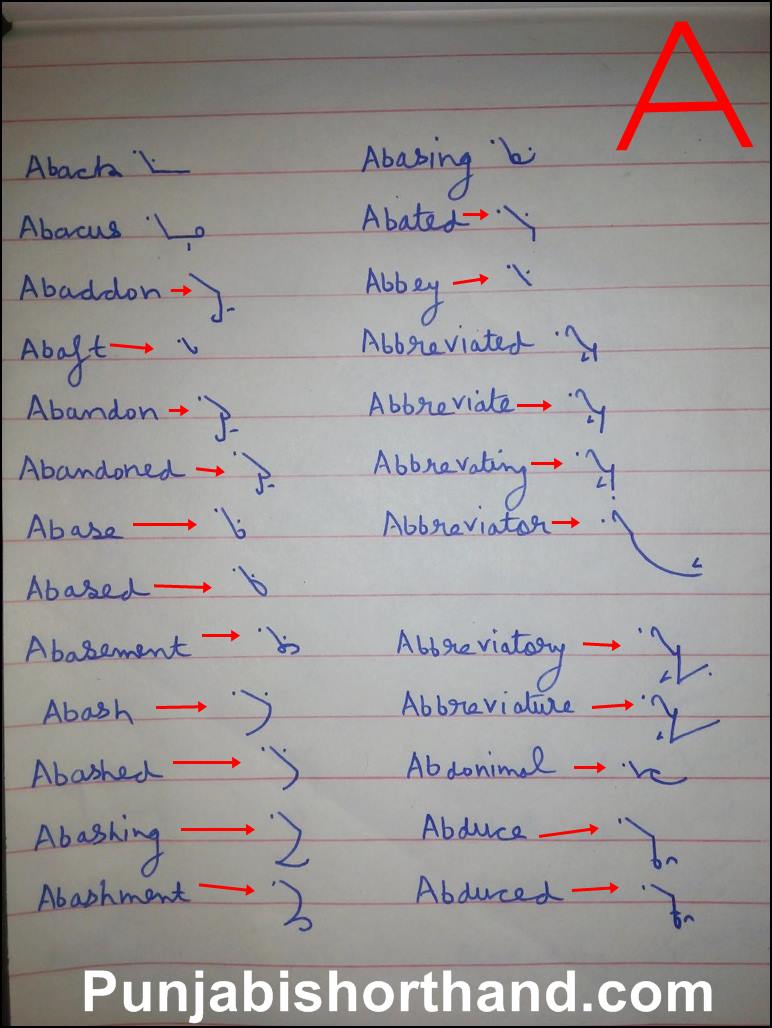 A
Abacta
Abacus
Abaddon
Abaft
Abandon
Abandoned
Abase
Abased
Abasement
Abash
Abashed
Abashing
Abashment
Abasing
Abated
Abbey
Abbreviated
Abbreviate
Abbrevating
Abbreviator
Abbreviatory
Abbreviature
Abdonimal
Abduce
Abduced
Punjabishorthand.com